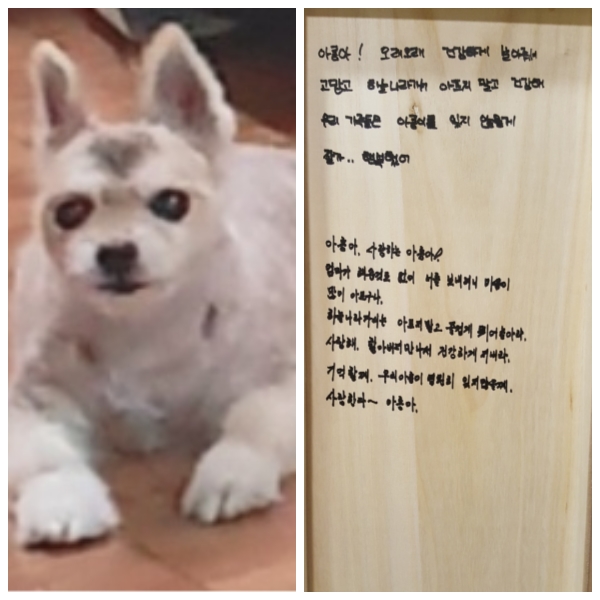 아롱아! 오래오래 건강하게 살아줘서
고맙고 하늘나라가서 아프지 말고 건강해
우리 가족들은 아롱이를 잊지 않을게
잘가.. 행복했어
아롱아. 사랑하는 아롱아
엄마가 해준것도 없이 너를 보내려니 마음이
또이 아프구나.
하늘나라가서는 아프지말고 즐겁게 뛰어놀아라.
사랑해. 할아버지만나서 건강하게 지내라.
기억할께. 우리아롱이 영원히 잊지않을께.
사랑한다~ 아롱아.